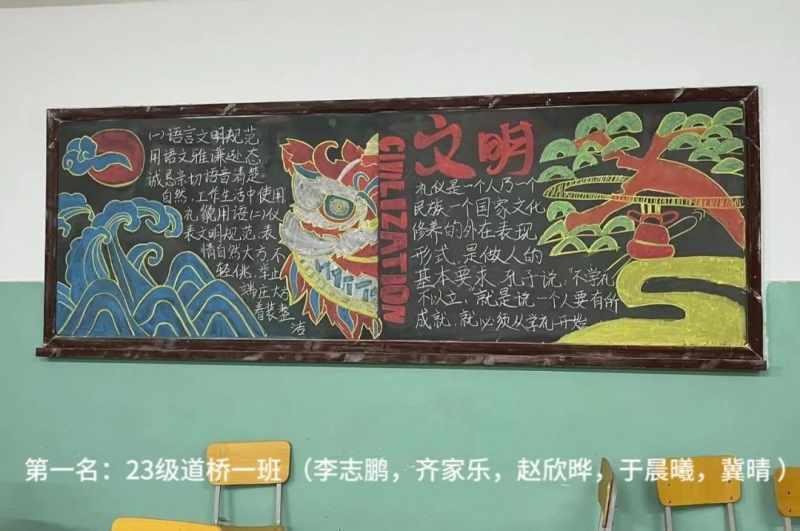 (一)语言文明规范
用语文雅谦逊态
诚恳亲切语言清楚
自然,工作生活中使用
礼貌用语(二)仪
表文明规范,表
情自然大方,不
轻佻,举止
端庄大方
着装整
洁
CIVILIZATION
文明
礼仪是一个人乃一个
民族一个国家文化
修养的外在表现
形式,是做人的
基本要求.孔子说,"不学礼
不以立,就是说一个人要有所
成就,就必须从学礼开始
第一名:23级道桥一班 (李志鹏,齐家乐,赵欣晔,于晨曦,冀晴)